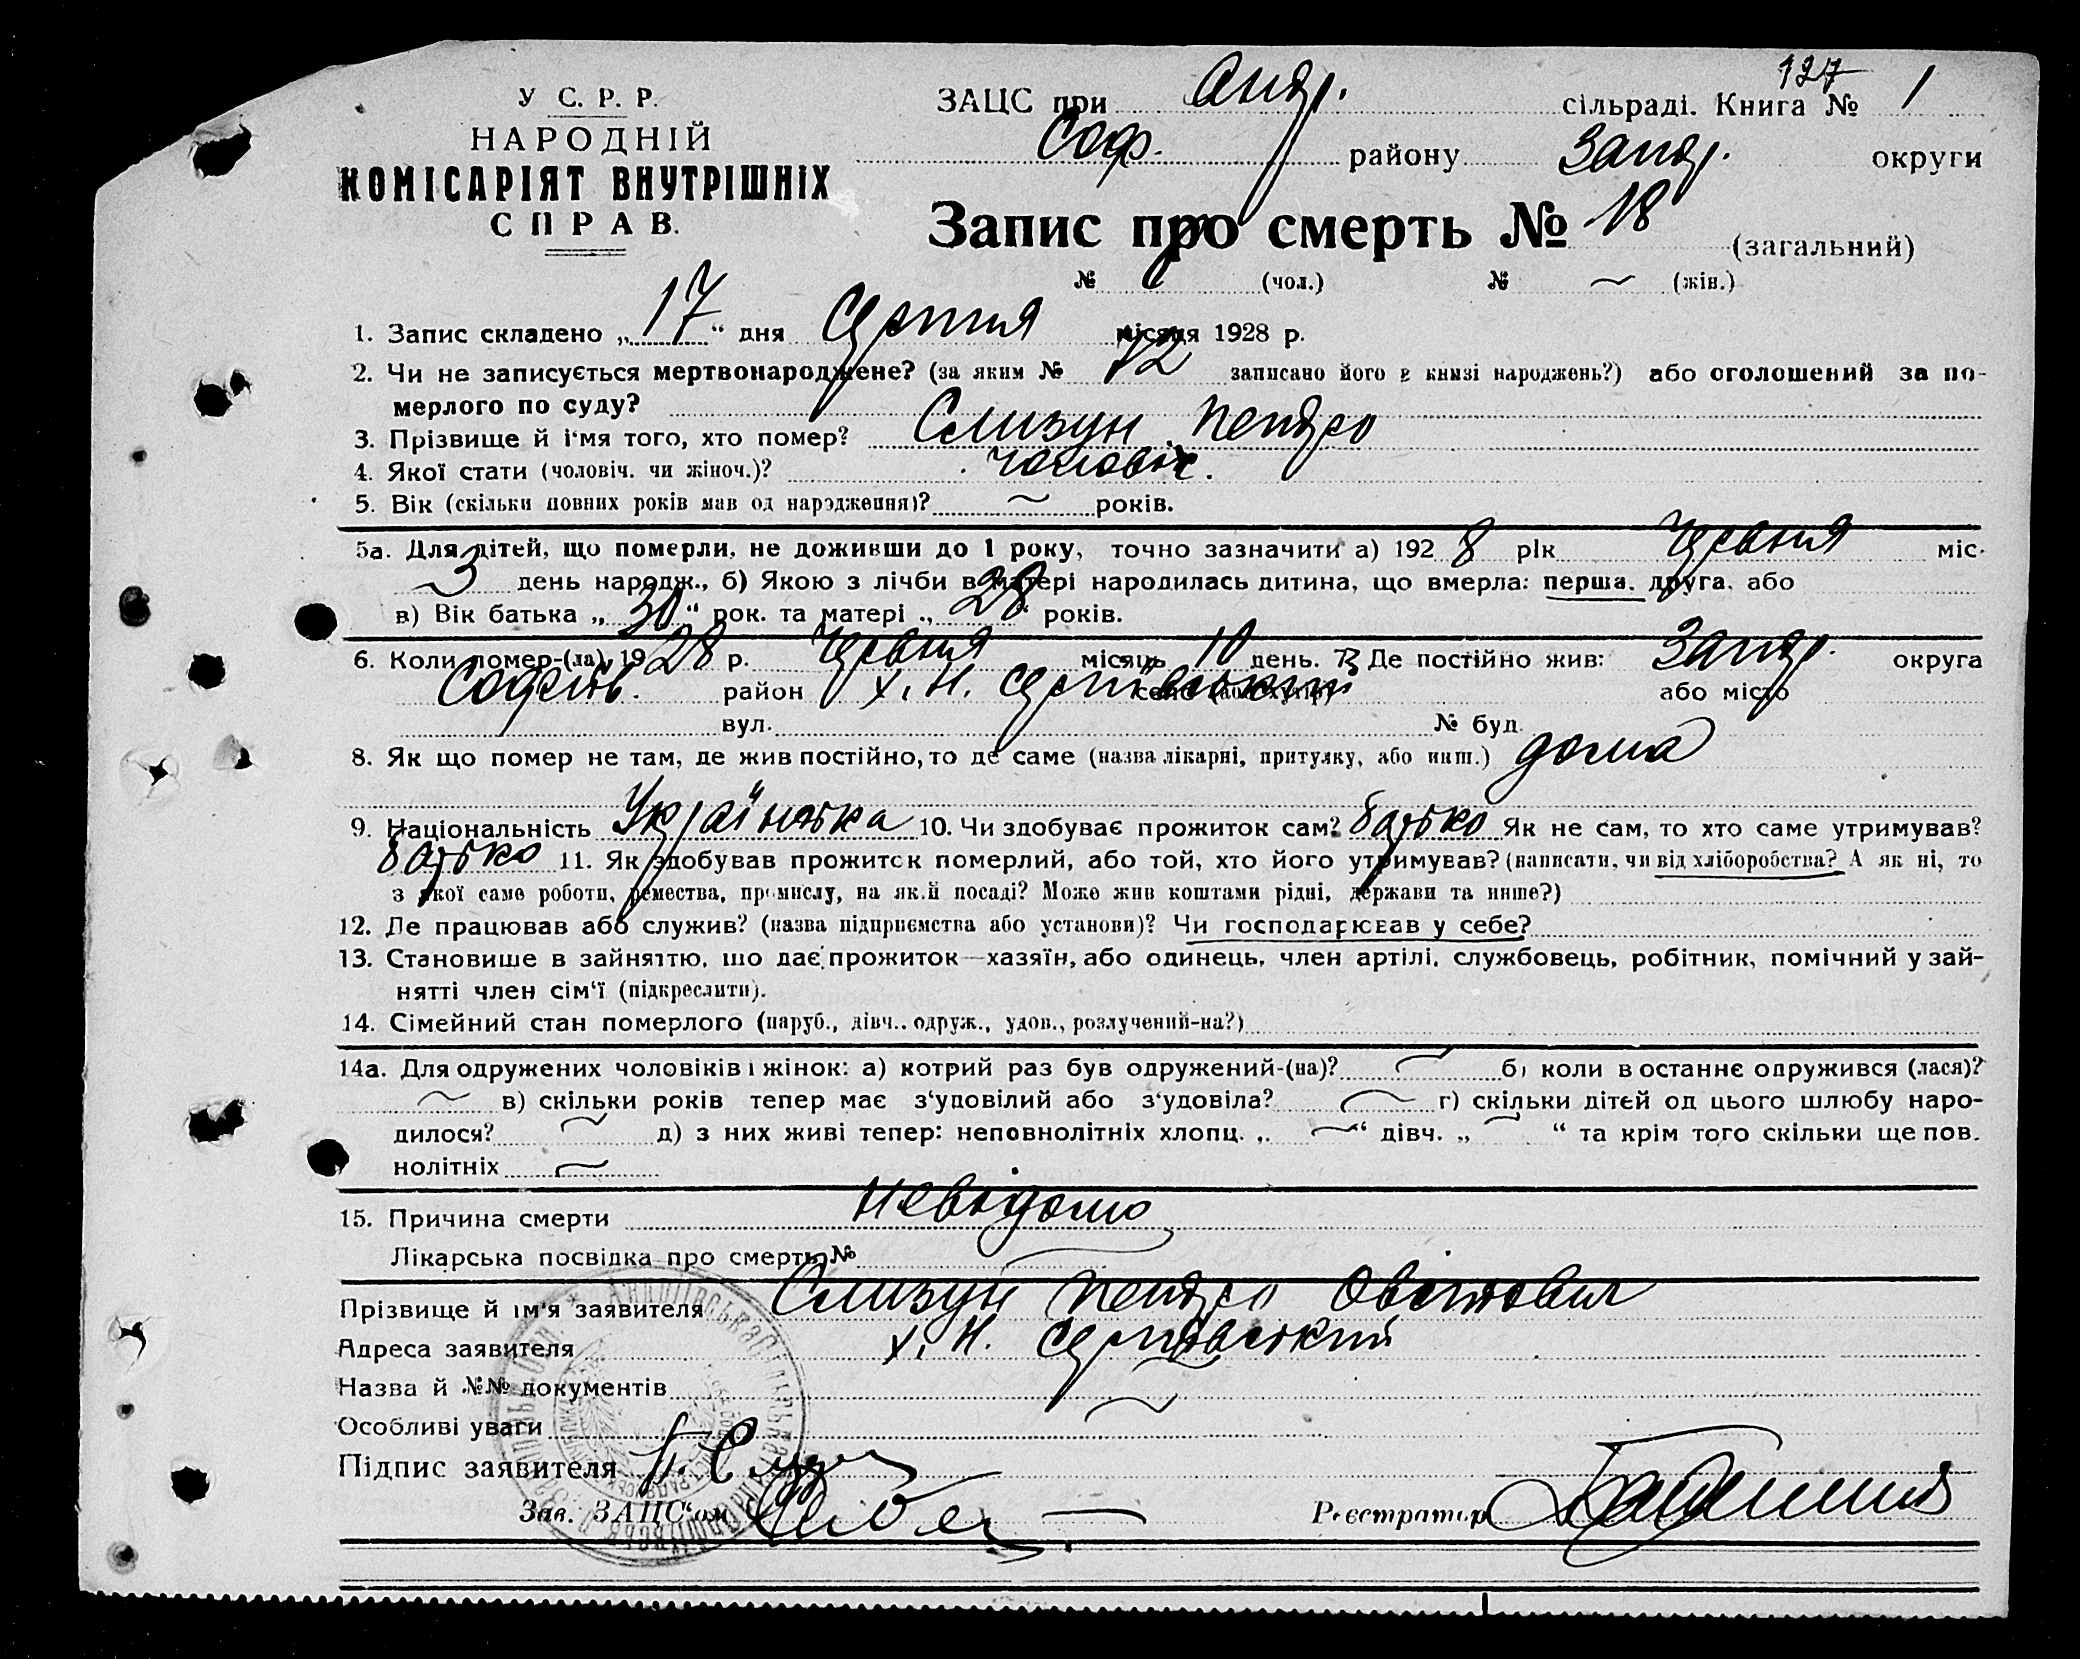 127
У С. Р. Р.
НАРОДНІЙ
КОМІСАРІЯТ ВНУТРІШНІХ
СПРАВ.
ЗАЦС при Андр. сільраді. Книга № 1
Соф. району Запор. округи
Запис про смерть № 18 (загальний)
№ (чол.) № ~ (жін.)
1. Запис складено „ 17 “ дня Серпня місяця 1928 р.
2. Чи не записується мертвонароджене? (за яким № 12 записано його в книзі народжень?) або оголошений за по-
мерлого по суду?
3. Прізвище й ім'я того, хто помер? Слизун Петро
4. Якої стати (чоловіч. чи жіноч.)? чоловіч.
5. Вік (скільки повних років мав од народження)? ~ років.
5а. Для дітей, що померли, не доживши до 1 року, точно зазначити а) 192 8 рік Червня міс.
3 день народж., б) Якою з лічби в матері народилась дитина, що вмерла: перша, друга, або
в) Вік батька „ 30 “ рок. та матері „ 28 “ років.
6. Коли помер-(ла) 19 28 р. Червня місяць 10 день. Де постійно жив: Запор. округа
Софіїв. район х. Н. Сергіївський село (або хутір) або місто
вул. № буд.
8. Як що помер не там, де жив постійно, то де саме (назва лікарні, притулку, або инш.) дома
9. Національність Українська 10. Чи здобуває прожиток сам? батько Як не сам, то хто саме утримував?
батько 11. Як здобував прожиток померлий, або той, хто його утримував? (написати, чи від хліборобства? А як ні, то
з якої саме роботи, ремества, промислу, на якій посаді? Може жив коштами рідні, держави та инше?)
12. Де працював або служив? (назва підприємства або установи)? Чи господарював у себе?
13. Становише в зайняттю, що дає прожиток—хазяїн, або одинець, член артілі, службовець, робітник, помічний у зай-
нятті член сім'ї (підкреслити).
14. Сімейний стан померлого (паруб., дівч., одруж., удов., розлучений-на?)
14а. Для одружених чоловіків і жінок: а) котрий раз був одружений-(на)? ~ б) коли востаннє одружився (лася)?
~ в) скільки років тепер має з'уповілий або з'удовіла? ~ г) скільки дітей од цього шлюбу наро-
дилося? ~ д) з них живі тепер: неповнолітніх хлопц. „ ~ “ дівч. „ ~ “ та крім того скільки ще пов.
нолітніх ~
15. Причина смерти невідомо
Лікарська посвідка про смерть №
Прізвище й ім'я заявителя Слизун Петро
Адреса заявителя х. Н. Сергіївський
Назва й №№ документів ~
Особливі уваги ~
Підпис заявителя П.
Зав. ЗАЦС'ом
Реєстратор